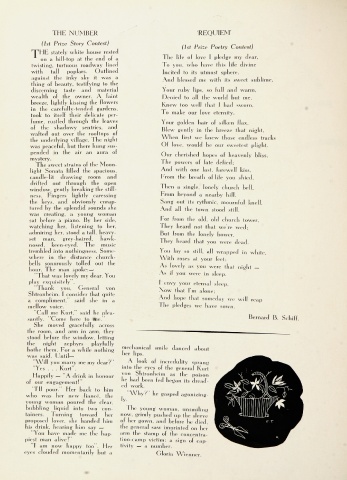 THE NUMBER
(1st Prize Story Contest)
THE stately white house rested
on a hill-top at the end of a
twisting, tortuous roadway lined
with tall poplars. Outlined
against the inky sky it was a
thing of beauty, testifying to the
discerning taste and material
wealth of the owner. A faint
breeze, lightly kissing the flowers
in the carefully-tended gardens,
took to itself their delicate per-
fume, rustled through the leaves
of the shadowy sentries, and
wafted out over the rooftops of
the underlying village. The night
was peaceful, but there hung sus-
pended in the air an aura of
mystery.
The sweet strains of the Moon-
light Sonata filled the spacious,
candle-lit drawing room and
drifted out through the open
window, gently breaking the still-
ness. Fingers lightly caressing
the keys, and obviously enrap-
tured by the splendid sounds she
was creating, a young woman
sat before a piano. By her side,
watching her, listening to her,
admiring her, stood a tall, heavy-
set man, grey-haired, hawk-
nosed, keen-eyed. The music
trembled into nothingness. Some-
where in the distance church-
bells sonorously tolled out the
hour. The man spoke—
"That was lovely my dear. You
play exquisitely."
"Thank you, General von
Shtrauheim. I consider that quite
a compliment," said she in a
mellow voice.
"Call me Kurt," said he plea-
santly. "Come here to me."
She moved gracefully across
the room, and arm in arm, they
stood before the window, letting
the night zephyrs playfully
bathe them. For a while nothing
was said. Until—
"Will you marry me my dear?"
"Yes . . . Kurt."
Happily — "A drink in honour
of our engagement!"
"I'll pour." Her back to him
who was her new fiancé, the
young woman poured the clear,
bubbling liquid into two con-
tainers. Turning toward her
proposed lover, she handed him
his drink, hearing him say —
"You have made me the hap-
piest man alive!"
"I am now happy too". Her
eyes clouded momentarily but a
mechanical smile danced about
her lips.
A look of incredibility sprang
into the eyes of the general Kurt
von Shtrauheim as the poison
he had been fed began its dread-
ed work.
"Why?" he gasped agonizing-
ly.
The young woman, unsmiling
now, grimly pushed up the sleeve
of her gown, and before he died,
the general saw imprinted on her
arm the stamp of the concentra-
tion camp victim, a sign of cap-
tivity — a number.
Gloria Wiesner.
REQUIENT
(1st Prize Poetry Contest)
The life of love I pledge my dear,
To you, who have this life divine
Incited to its utmost sphere,
And blessed me with its sweet sublime.
Your ruby lips, so full and warm,
Denied to all the world but me,
Knew too well that I had sworn,
To make our love eternity.
Your golden hair of silken flax,
Blew gently in the breeze that night,
When first we knew those endless tracks
Of love, would be our sweetest plight.
Our cherished hopes of heavenly bliss,
The powers of fate defied;
And with one last, farewell kiss,
From the breath of life you died.
Then a single, lonely church bell,
From beyond a nearby hill,
Sang out its rythmic, mournful knell,
And all the town stood still.
For from the old, old church tower,
They heard not that we're wed;
But from the lonely bower,
They heard that you were dead.
You lay so still, all wrapped in white,
With roses at your feet;
As lovely as you were that night —
As if you were in sleep.
I envy your eternal sleep,
Now that I'm alone;
And hope that someday we will reap
The pledges we have sown.
Bernard B. Schiff.